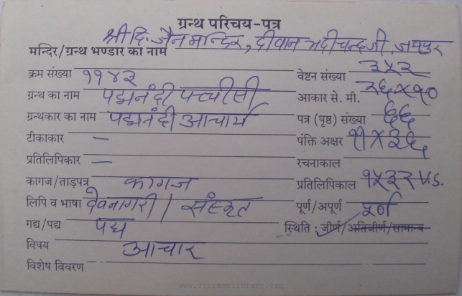 ग्रन्थ परिचय-पत्र
श्री दि. जैन मन्दिर, दीवान भदीचन्दजी, जयपुर
मन्दिर/ग्रन्थ भण्डार का नाम
क्रम संख्या ११४२ वेष्टन संख्या ३५२
ग्रन्थ का नाम पद्मनंदी पच्चीसी आकार से. मी. २६x१०
ग्रन्थकार का नाम पद्मनंदी आचार्य पत्र (पृष्ठ) संख्या ६६
टीकाकार — पंक्ति अक्षर ११x३६
प्रतिलिपिकार — रचनाकाल
कागज/ताड़पत्र कागज प्रतिलिपिकाल १५३२ V.S.
लिपि व भाषा देवनागरी / संस्कृत पूर्ण/अपूर्ण पूर्ण
गद्य/पद्य पद्य स्थिति : जीर्ण/अतिजीर्ण/सामान्य
विषय आचार
विशेष विवरण